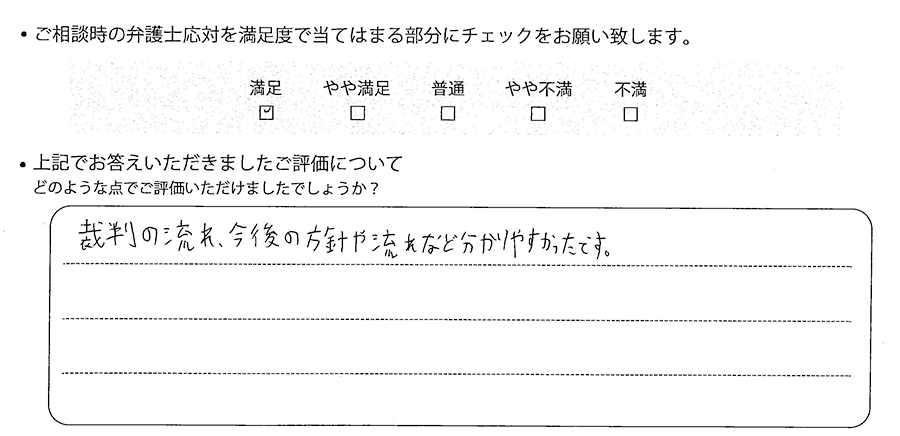 • ご相談時の弁護士応対を満足度で当てはまる部分にチェックをお願い致します。
満足 やや満足 普通 やや不満 不満
☑ ☐ ☐ ☐ ☐
• 上記でお答えいただきましたご評価について
どのような点でご評価いただけましたでしょうか？
裁判の流れ、今後の方針や流れなど分かりやすかったです。